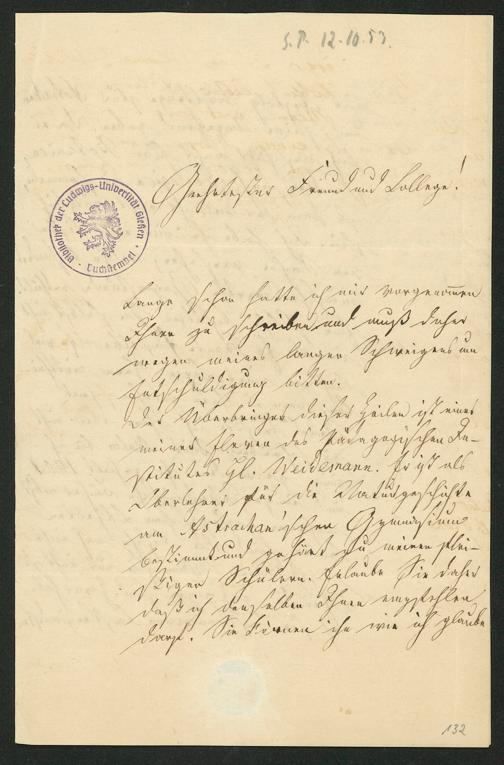 S.P. 12.10.53.
Bibliothek der Ludwigs-Universität Gießen
Buchstempel
Geehrtester Freund und College!
Lange schon hatte ich mir vorgenommen
Ihnen zu schreiben und muß daher
wegen meines langen Schweigens um
Entschuldigung bitten.
Der Überbringer dieser Zeilen ist einer
meiner Eleven des Pädagogischen In-
stitutes H. Weidemann. Er ist als
Oberlehrer für die Naturgeschichte
am Astrachan'schen Gymnasium
bestimmt und gehört zu meinen flei-
ßigen Schülern. Erlauben Sie daher
daß ich denselben Ihnen empfehlen
darf. Sie können ihn wie ich glaube
132